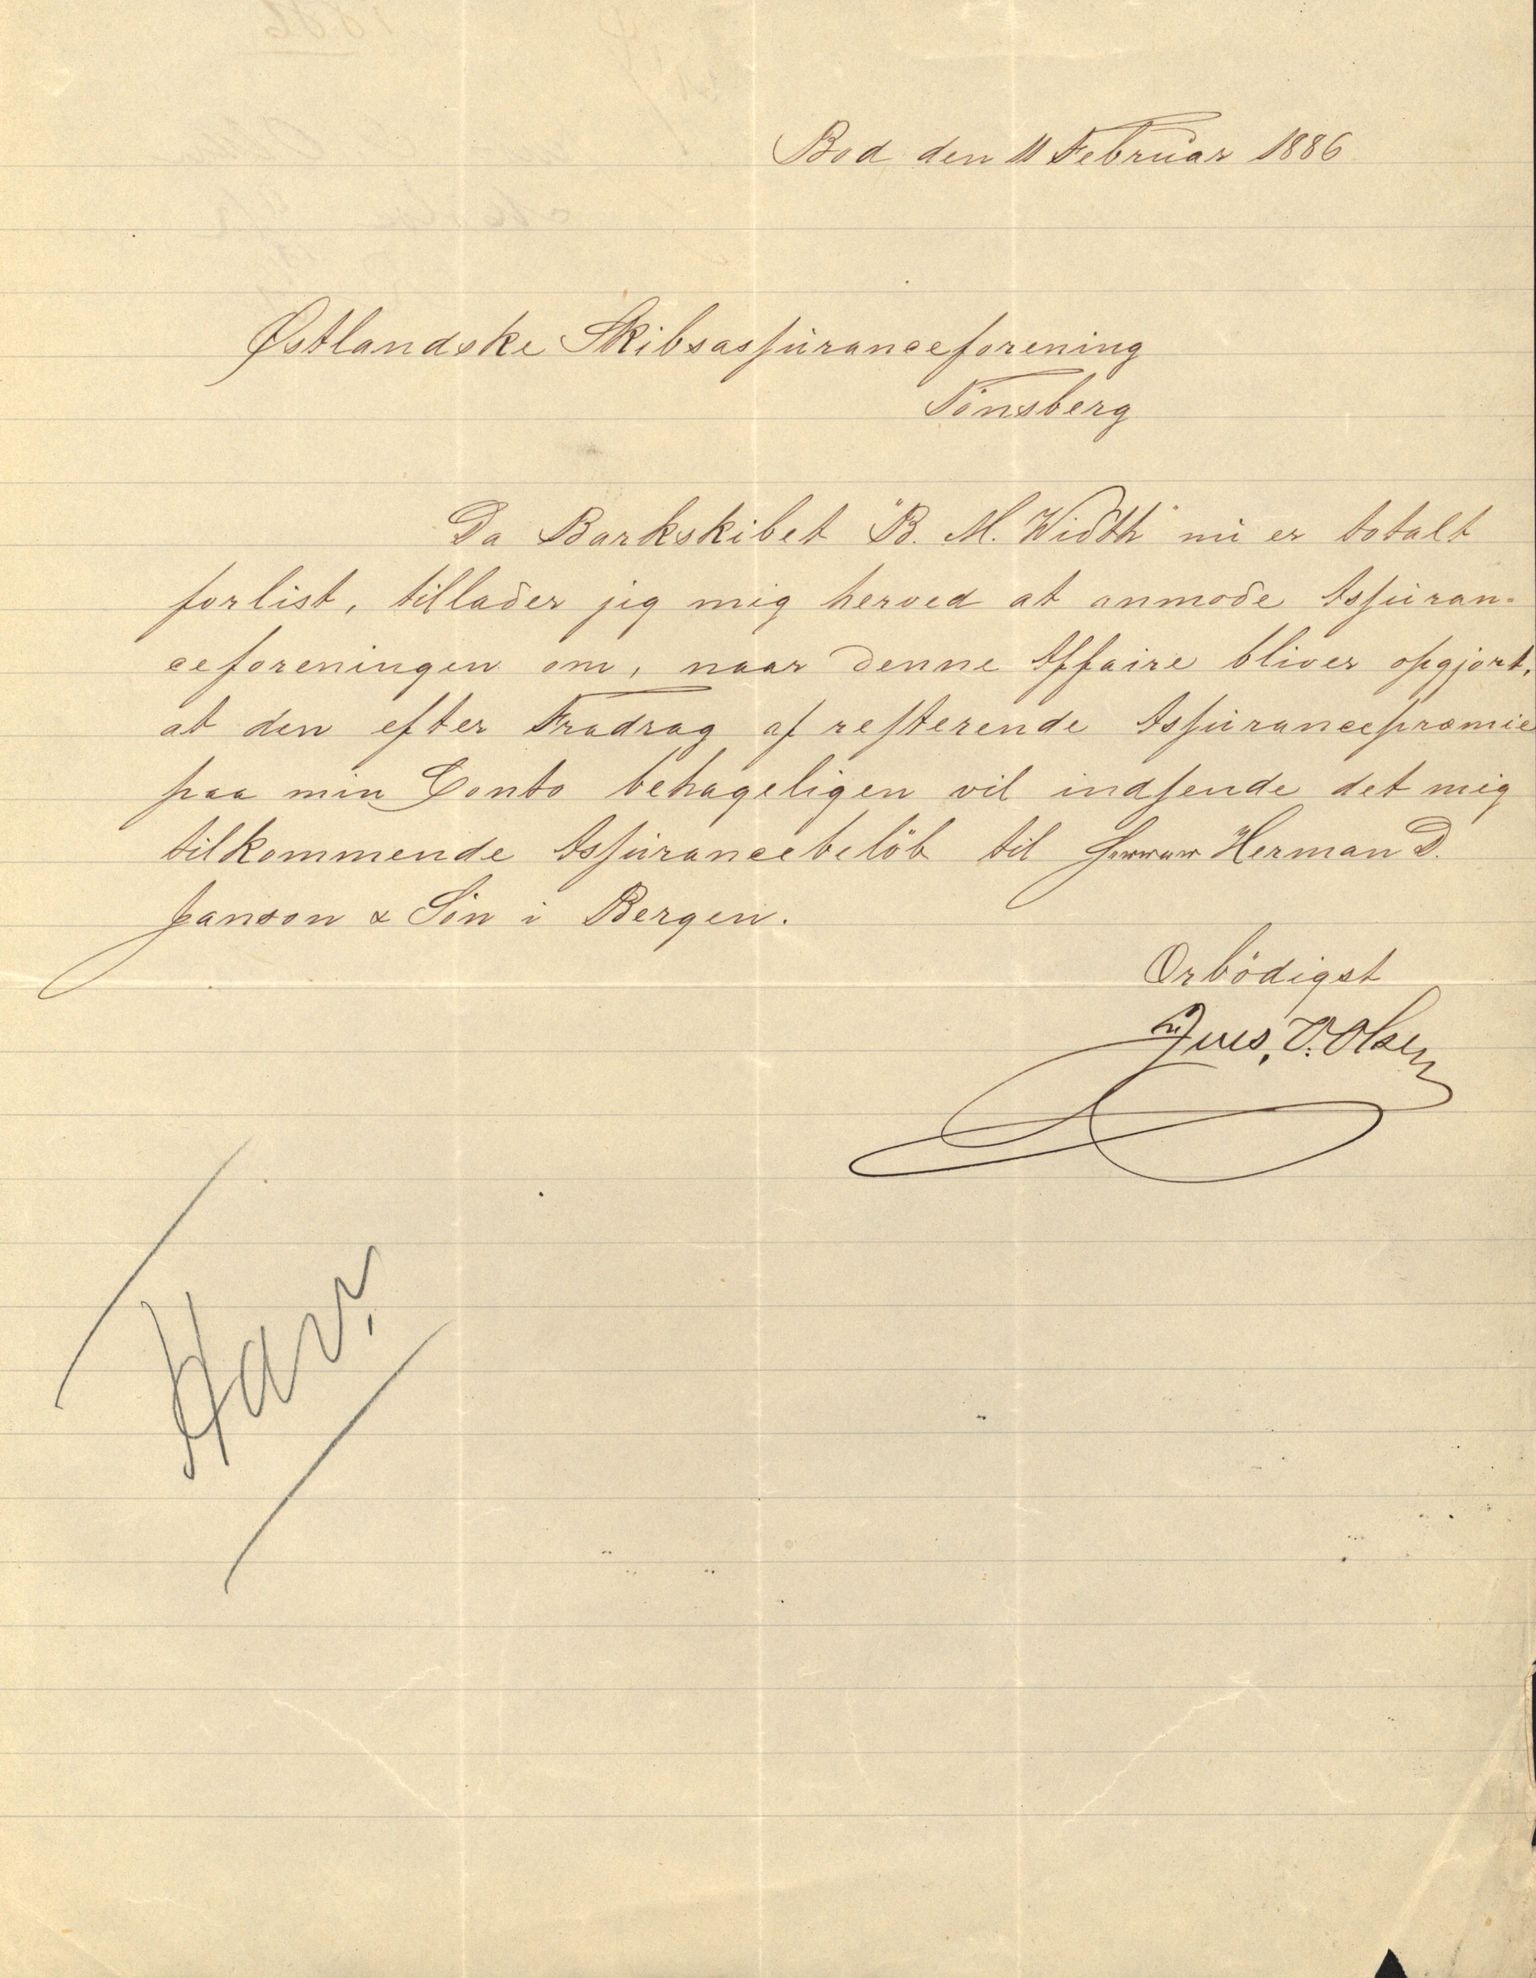 Bod den 11 Februar 1886
Østlandske Skibsassuranceforening
Tönsberg
Da Barkskibet "B. M. Width" nu er totalt
forlist, tillader jeg mig herved at anmode Assuran-
ceforeningen om, naar denne Affaire bliver opgjort,
at den efter Fradrag af resterende Assurancepræmie
paa min Conto behageligen vil indsende det mig
tilkommende Assurancebelöb til Herman D.
Janson & Sön i Bergen.
Ærbödigst
Olsen
Hav.